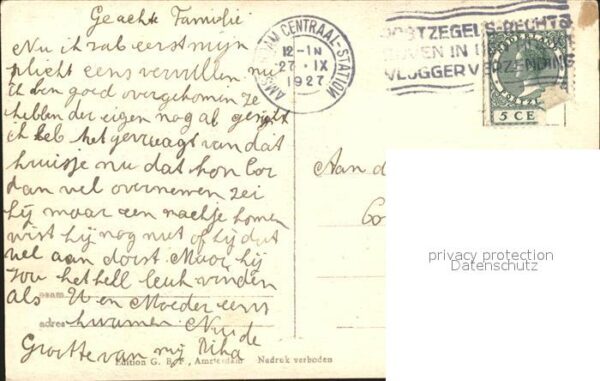 Geachte Familie
Nu ik zal eerst mijn
plicht eens vervullen nu
U een goed overgekomen ze
hebben der eigen nog al
ik heb het gevraagt van dat
huisje nu dat kon Cor
dan wel overnemen zei
hij maar een nachje komen
wist hij nog niet of hij dat
wel aan dorst Maar hij
zou het hell leuk vinden
als U en Moeder eens
kwamen Nu de
Groette van mij Rika
naam
adres
Edition G. B. F., Amsterdam Nadruk verboden
AMSTERDAM CENTRAAL-STATION
12-1N
27 · IX
1927
POSTZEGELS RECHTS
BOVEN IN
VLUGGER VERZENDING
5 CE
Aan d
privacy protection
Datenschutz